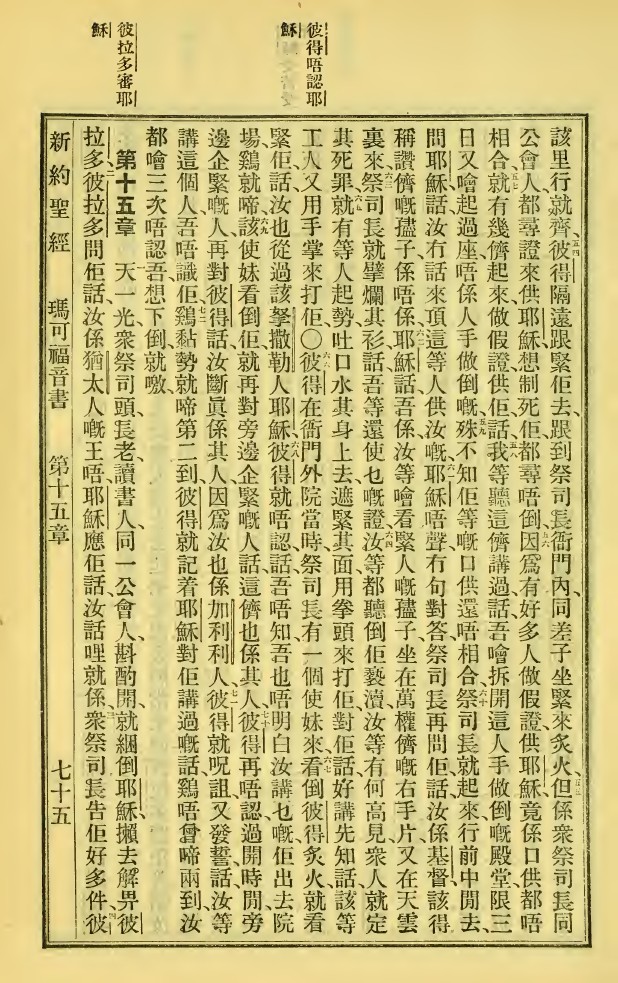 彼得唔認耶
穌
彼拉多審耶
穌
該里行就齊彼得隔遠跟緊佢去、跟到祭司長衙門內、同差子坐緊來炙火但係衆祭司長同
公會人都尋證來供耶穌想制死佢都尋唔倒因爲有好多人做假證供耶穌竟係口供都唔
相合就有幾儕起來做假證供佢話我等聽這儕講過話吾噲拆開這人手做倒嘅殿堂限三
日又噲起過座唔係人手做倒嘅殊不知佢等嘅口供還唔相合祭司長就起來行前中間去、
問耶穌話汝冇話來項這等人供汝嘅耶穌唔聲冇句對答祭司長再問佢話汝係基督該得
稱讚儕嘅孻子係唔係耶穌話吾係汝等噲看緊人嘅孻子坐在萬權儕嘅右手片又在天雲
裏來祭司長就擘爛其衫話吾等還使乜嘅證汝等都聽倒佢褻瀆汝等有何高見衆人就定
其死罪就有等人起勢吐口水其身上去遮緊其面用拳頭來打佢對佢話好講先知話該等
工人又用手掌來打佢〇彼得在衙門外院當時祭司長有一個使妹來看倒彼得炙火就看
緊佢話汝也從過該拏撒勒人耶穌彼得就唔認話吾唔知吾也唔明白汝講乜嘅佢出去院
場鷄就啼該使妹看倒佢就再對旁邊企緊嘅人話這儕也係其人彼得再唔認過開時閒旁
邊企緊嘅人再對彼得話汝斷眞係其人因爲汝也係加利利人彼得就呪詛又發誓話汝等
講這個人吾唔識佢鷄黏勢就啼第二到彼得就記着耶穌對佢講過嘅話鷄唔曾啼兩到汝
都噲三次唔認吾想下倒就噭
第十五章 天一光衆祭司頭長老讀書人同一公會人斟酌開就綑倒耶穌㨢去解畀彼
拉多彼拉多問佢話汝係猶太人嘅王唔耶穌應佢話汝話哩就係衆祭司長告佢好多件彼
新約聖經 瑪可福音書 第十五章 七十五